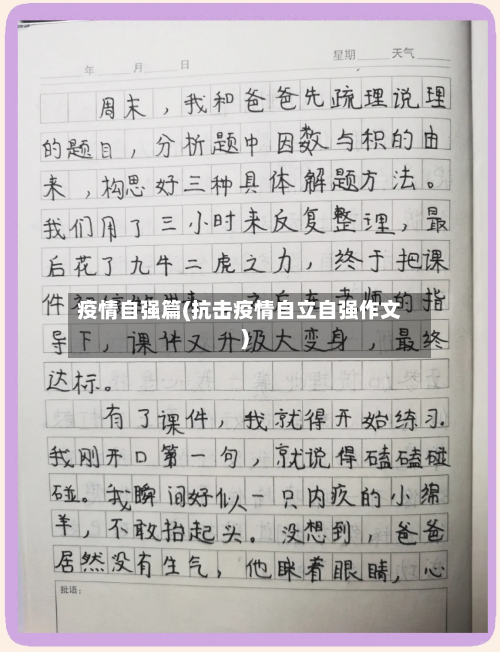 年 月 日 星期 天气
周末，我和爸爸先疏理说理
的题目，分析题中因数与积的由
来，构思好三种具体解题方法。
我们用了三小时来反复整理，最
后花了九牛二虎之力，终于把课
件
疫情自强篇(抗击疫情自立自强作文
)
老师的指
导下，课件又升级大变身，最终
达标。
有了课件，我就得开始练习.
我刚开口第一句，就说得磕磕碰
碰。我瞬间好似一只内疚的小绵
羊，不敢抬起头。没想到，爸爸
居然没有生气，他眯着眼睛，心
批语：